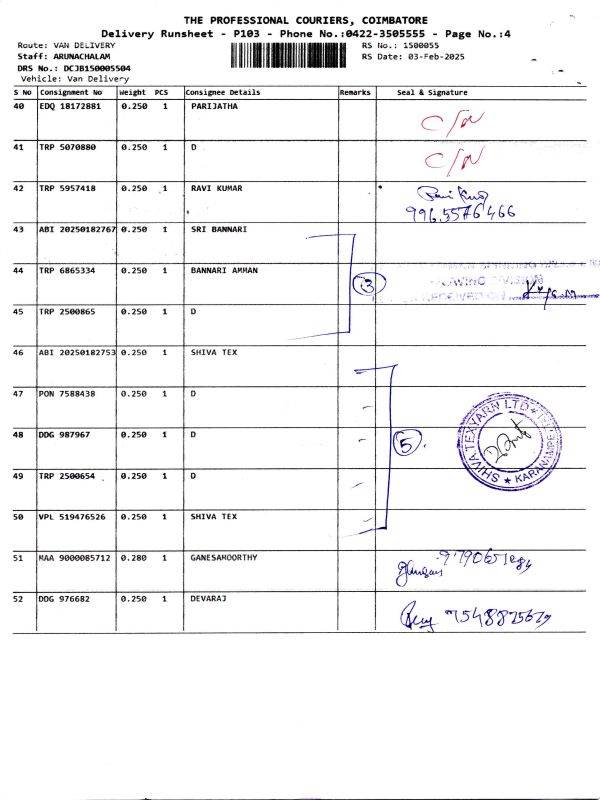 THE PROFESSIONAL COURIERS, COIMBATORE
Delivery Runsheet - P103 - Phone No.:0422-3505555 - Page No.:4
Route: VAN DELIVERY RS No.: 1500055
Staff: ARUNACHALAM RS Date: 03-Feb-2025
DRS No.: DCJB150005504
Vehicle: Van Delivery
S No Consignment No Weight PCS Consignee Details Remarks Seal & Signature
40 EDQ 18172881 0.250 1 PARIJATHA C/N
41 TRP 5070880 0.250 1 D C/N
42 TRP 5957418 0.250 1 RAVI KUMAR
43 ABI 20250182767 0.250 1 SRI BANNARI
44 TRP 6865334 0.250 1 BANNARI AMMAN 3
RECEIVED ON
45 TRP 2500865 0.250 1 D
46 ABI 20250182753 0.250 1 SHIVA TEX
47 PON 7588438 0.250 1 D
48 DDG 987967 0.250 1 D 5 SHIVA TEXYARN LTD
49 TRP 2500654 0.250 1 D
50 VPL 519476526 0.250 1 SHIVA TEX
51 MAA 9000085712 0.280 1 GANESAMOORTHY
52 DDG 976682 0.250 1 DEVARAJ